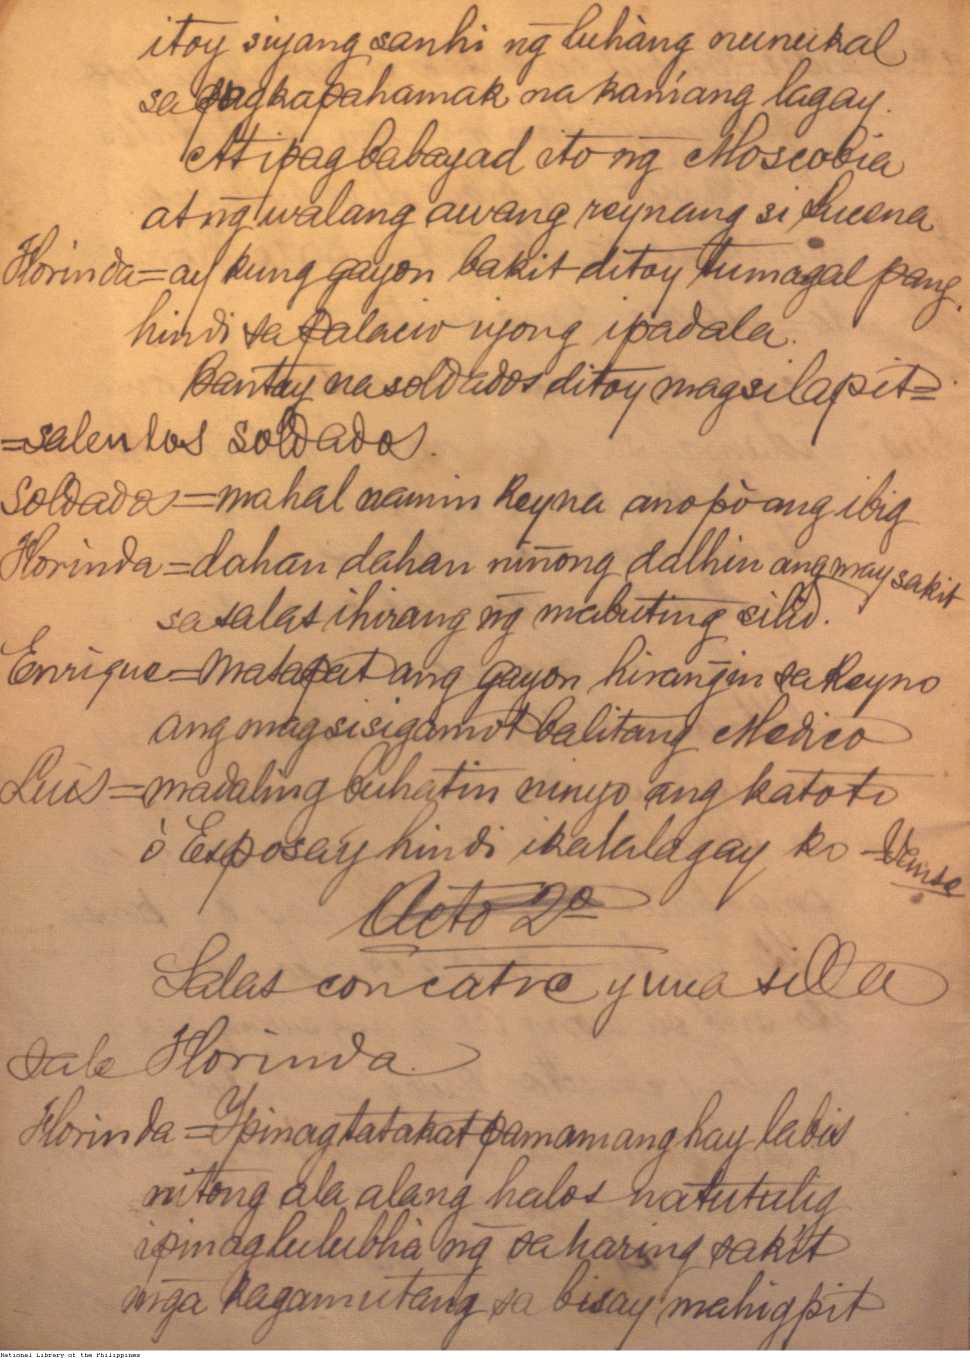 itoy siyang sanhi ng̃ luhàng nunukal
sa pagkapahamak na kaniang lagay.
At ipagbabayad ito ng̃ Moscobia
at ng̃ walang awang reynang si Lucena
Florinda=ay kung gayon bakit ditoy tumagal pang
hindi sa palacio iyong ipadala.
bantay na soldados ditoy magsilapit=
=salen los soldados.
Soldados=mahal namin Reyna ano pò ang ibig
Florinda=dahan dahan niñong dalhin ang may sakit
sa salas ihirang ng̃ mabuting silid.
Enrique=Matapat ang gayon hirang̃in sa Reyno
ang magsisigamot balitang Medico
Luis=madaling buhatin ninyo ang katoto
ó Esposay hindi ikalalagay ko =Vanse
Acto 2º
Salas con catre y una silla
Sale Florinda.
Florinda=Ipinagtatakat pamamanghay labis
nitong ala alang halos natutulig
ipinaglulubhà ng̃ sa haring sakìt
mg̃a kagamutang sa bisay mahigpit
National Library of the Philippines